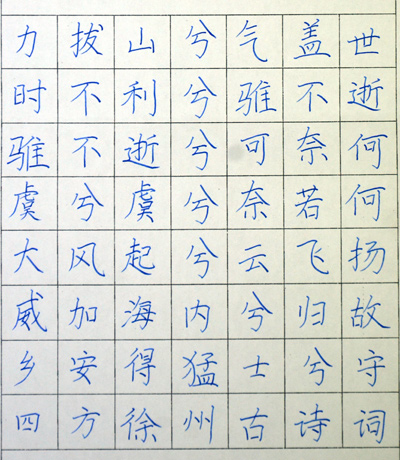 力拔山兮气盖世
时不利兮骓不逝
骓不逝兮可奈何
虞兮虞兮奈若何
大风起兮云飞扬
威加海内兮归故
乡安得猛士兮守
四方徐州古诗词